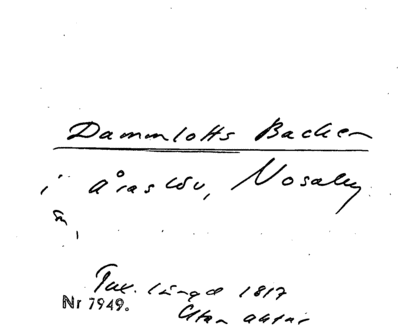 Dammlotts Backen
i Åraslöv, Nosaby
sn,
Tax. längd 1817
Nr 7949.
Utan aktnr